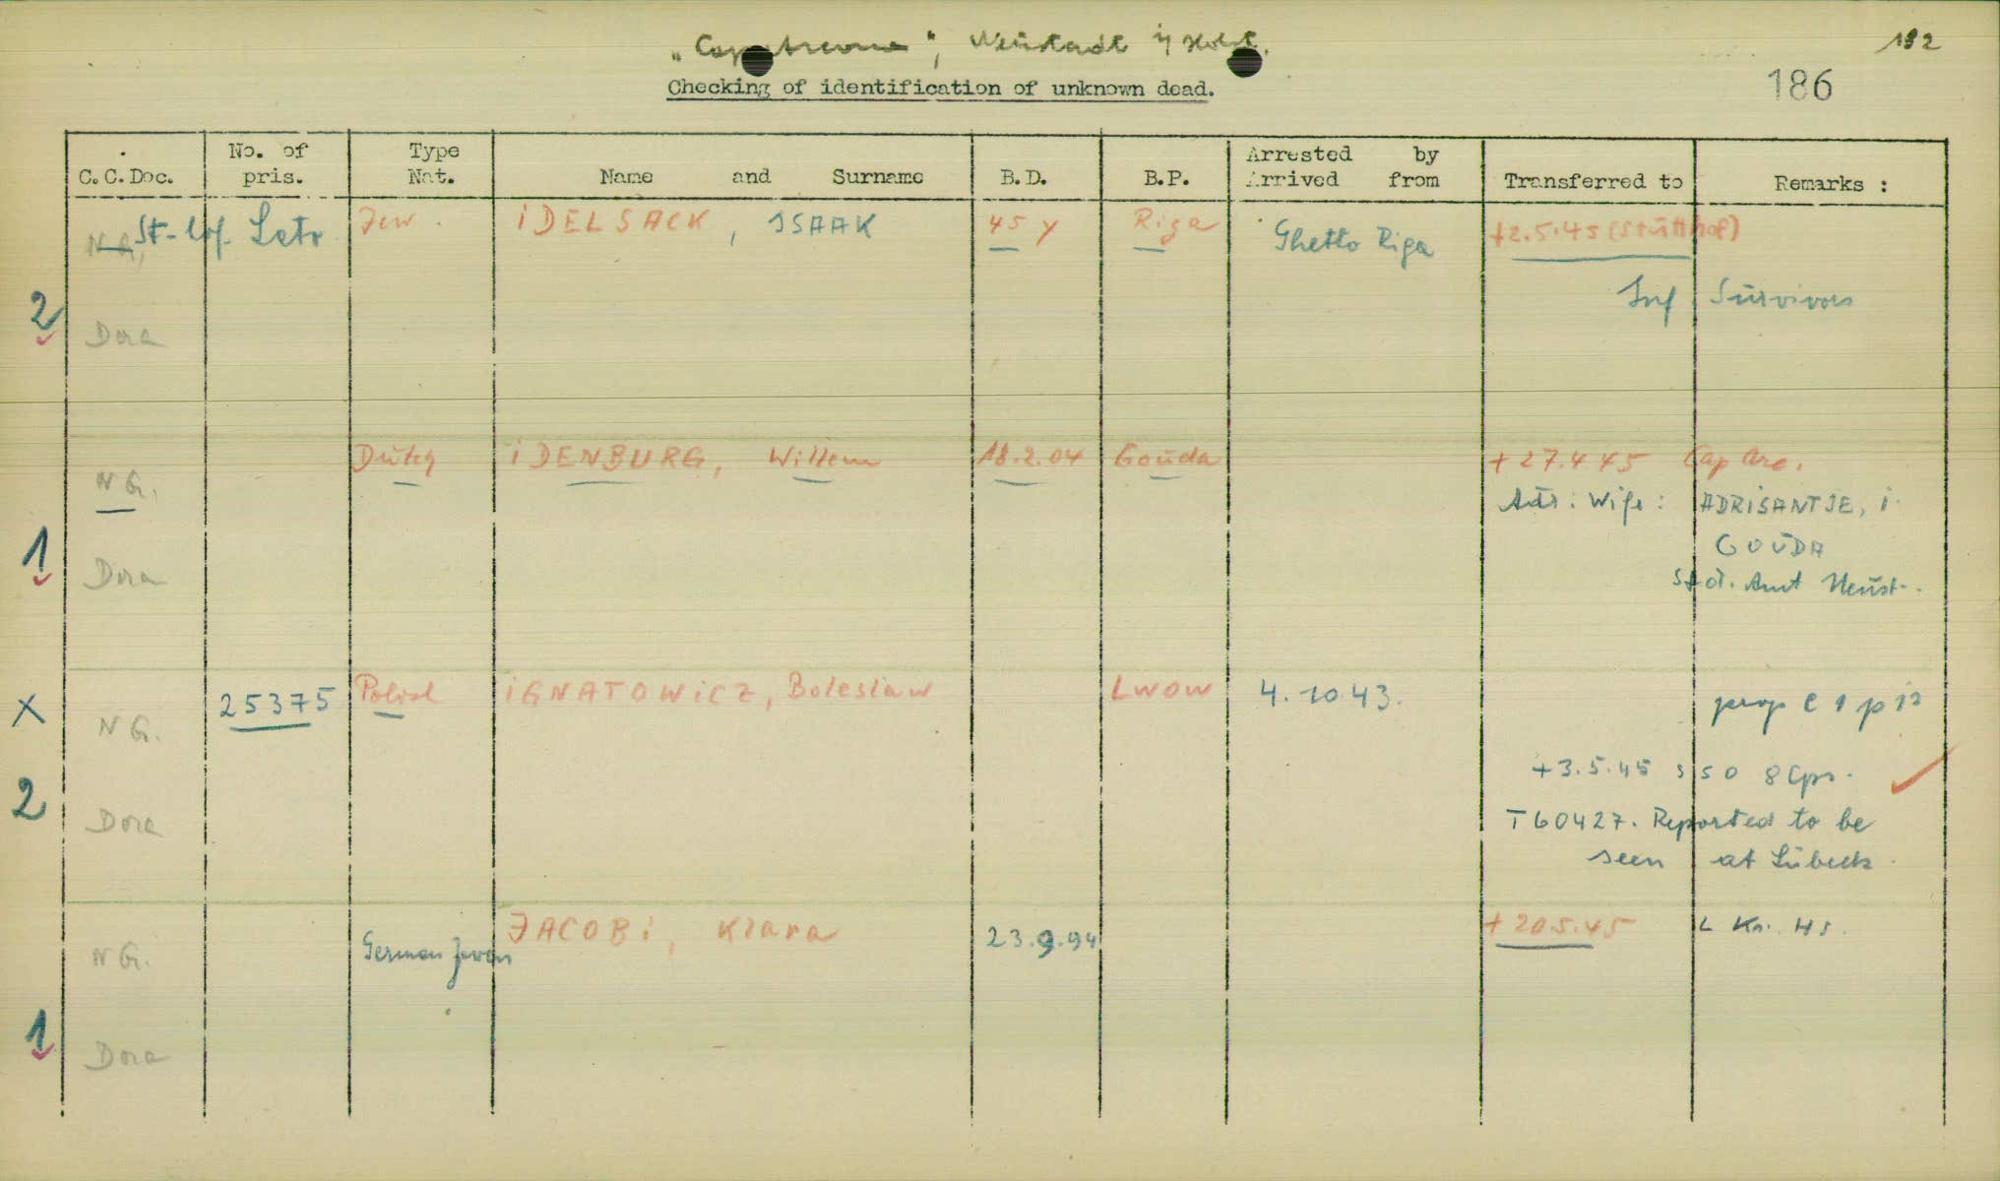 "Cap Arcona", Neustadt i/Holst.
192
186
Checking of identification of unknown dead.
C.C.Doc. No. of pris. Type Nat. Name and Surname B.D. B.P. Arrested by Arrived from Transferred to Remarks :
N G, St-hof. Jew. IDELSACK, ISAAK 45 y Riga Ghetto Riga +2.5.45 (Stutthof)
Inf Survivors
2
Dora
N G. Dutch IDENBURG, Willem 18.2.04 Gouda +27.4.45 Cap Arc.
Adr: Wife: ADRISANTJE, i.
GOUDA
1 Dora Std. Amt Neust.
X N G. 25375 Polish IGNATOWICZ, Boleslaw LWOW 4.10.43.
+3.5.45
2 Dora T60427. Reported to be
seen at Lübeck.
N G. German JACOBI, Klara 23.9.94 +20.5.45 L Kr. Hs.
1
Dora